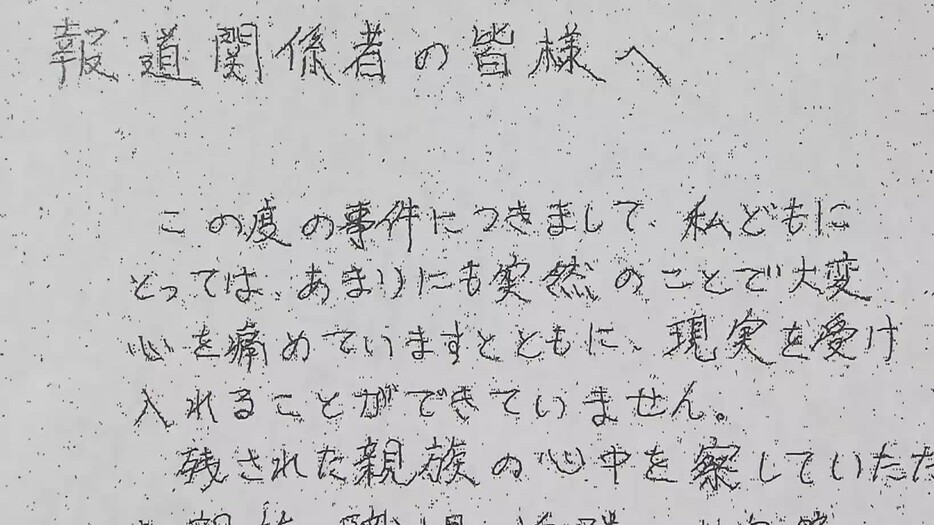 報道関係者の皆様へ
この度の事件につきまして、私どもに
とっては、あまりにも突然のことで大変
心を痛めていますとともに、現実を受け
入れることができていません。
残された親族の心中を察していただ